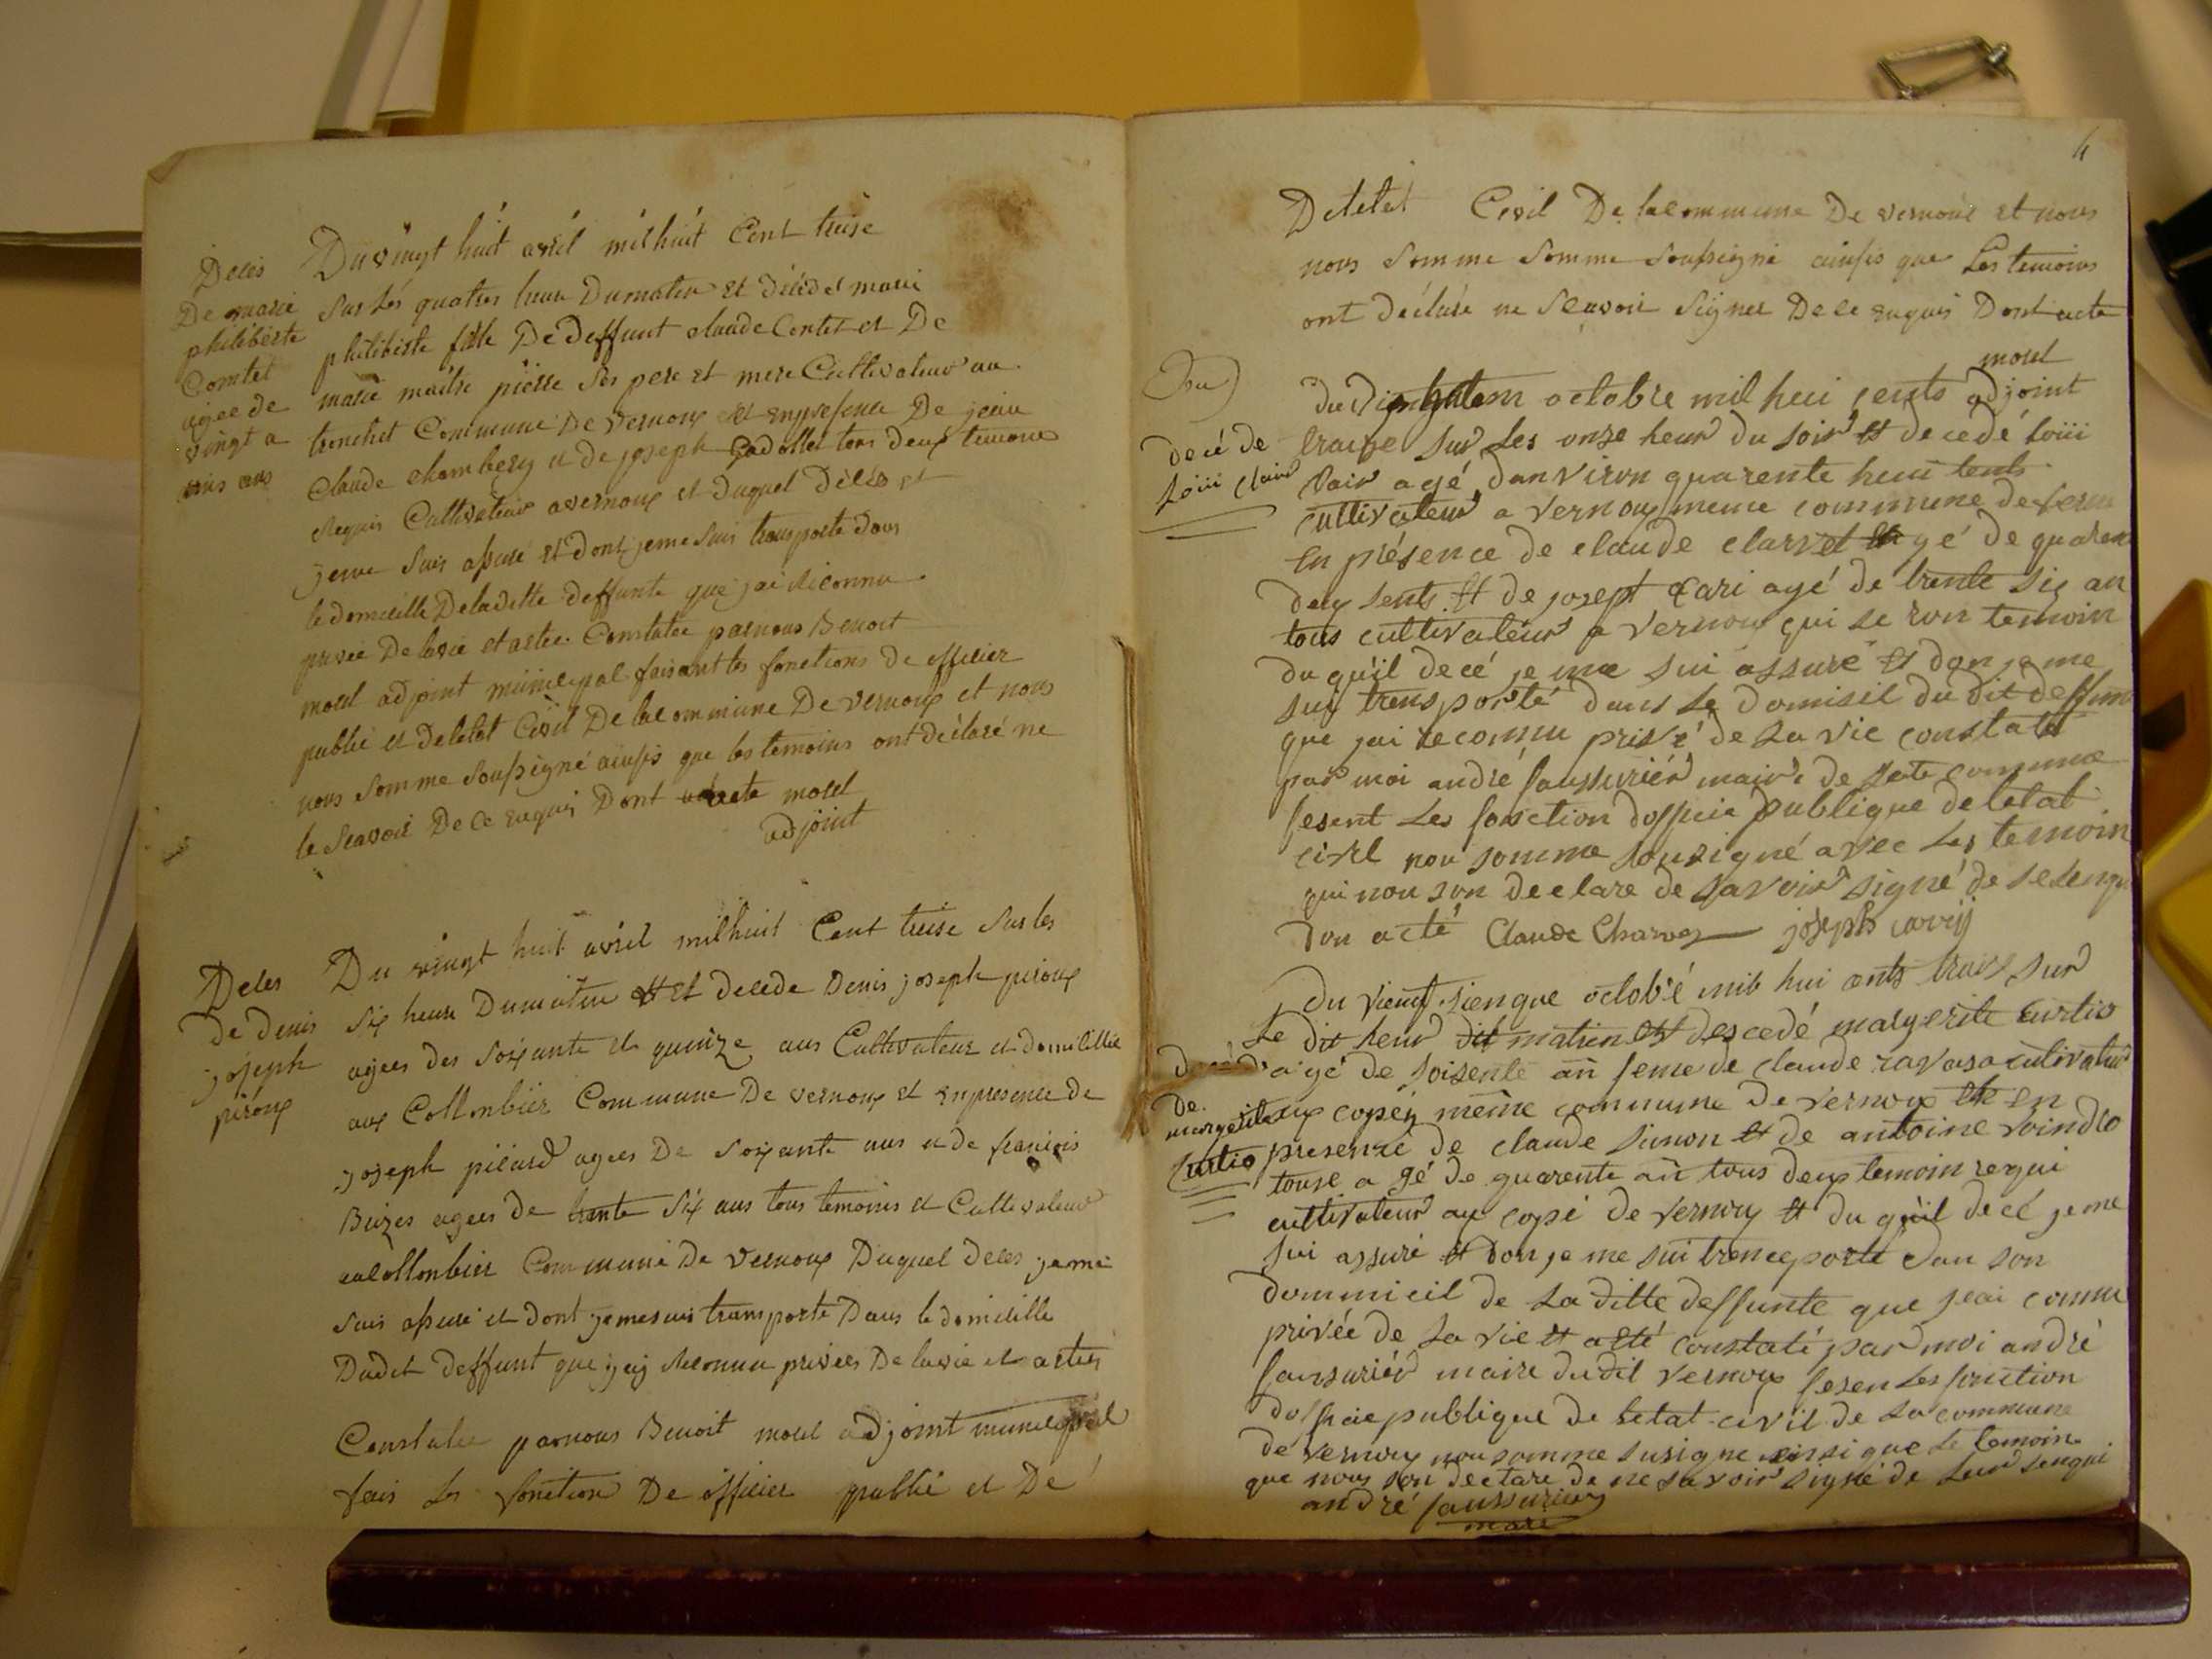 Deces
De marie
philiberte
Comtet
agée de
vingt a
unis ans
Du vingt huit avril mil huit Cent treise
Sur Les quatres heure Dumatin Et décédé marie
philiberte fille De Deffunt claude Contet et De
marie maitre pierre Ses pere Et mere Cultivateur au
tronchet Commune De Vernoux et En presence De jean
Claude Chambery et de joseph Cadollet tous deux temoins
Requis Cultivateur a vernoux et Duquel Décés et
jeme Suis assuré Et Dont jeme Suis transporte Dans
le domicille Deladitte deffunte que jai Reconnu
privée De lavie et a etee Constatee parnous Benoit
morel adjoint municipal faisant les fonctions De officier
public et De letat Civil De la commune De vernoux et nous
nous Somme Soussigné ainssis que les temoins ont déclaré ne
le Scavoir De ce Enquis Dont acte morel
adjoint
Deces
De Denis
joseph
piroux
Du vingt huit avril mil huit Cent treise Sur les
Six heure Dumatin Et Et decede Denis joseph piroux
agees des Soixante Et quinze ans Cultivateur et domicilliée
aux Collonbier Commune De vernoux et En presence de
joseph picard agees De Soixante ans et de francois
Buizes agees de trente Six ans tous temoins et Cultivateur
au Collonbier Commune De Vernoux Duquel Deces jeme
Suis assuré et Dont jemesuis transporte Dans le domicille
Dudit deffunt que jay Reconnu privees De lavie et a etees
Constatee parnous Benoit morel adjoint municipal
fais les fonction De officier public et De
4
De letat Civil De la commune De vernoux et nous
nous Somme Somme Soussigné ainssis que Les temoins
ont Déclaré ne Scavoir Signer De ce Enquis Dont acte
morel
adjoint
Du
decé de
Loiii clair
du octobre mil hui cents
traize sur Les onze heur du soir et decedé loiii
clair agé danviron quarente heui tents
cultivateur a vernoux meme commune de vern
en présence de claude clarvet agé de quarent
deux sents et de josept cari agé de trente sis an
tous cultivateur a vernoux qui se ron temoin
du quil decé je me sui assuré et don je me
suy transporté dans Le domisil du dit deffunt
que jai reconnu privé de La vie constaté
par moi andré saussuriér maire de sete comune
fesent Les fonction doffície publique de letat
civil nou somme sousigné avec Les temoin
qui nou son declare de savoir signé de selenqui
don acté Claude Charvet joseph carry
decé
de
margerite
Curtio
Du vient sienque octobré mil hui cents traize sur
Le dit heur dit matien et descedé margerite curtio
agé de soisente an feme de claude ravasa cultivateur
aux copéy même commune de vernoux et en
presence de claude simon et de antoine voindro
touse agé de quarente an tous deux temoin requi
cultivateur aux copé de vernoux et du quil decé je me
sui assuré et don je me sui trenceporté dan son
dommicil de La ditte deffunte que jeai connu
privée de La vie et a été constaté par moi andré
saussuriér maire du dit vernoux fesen Les fonction
dofficie publique de Letat civil de La commune
de vernoux nou somme susigne einsi que Le temoin
que nous son declare de ne savoir signé de Leur senqui
andré saussurier
mare